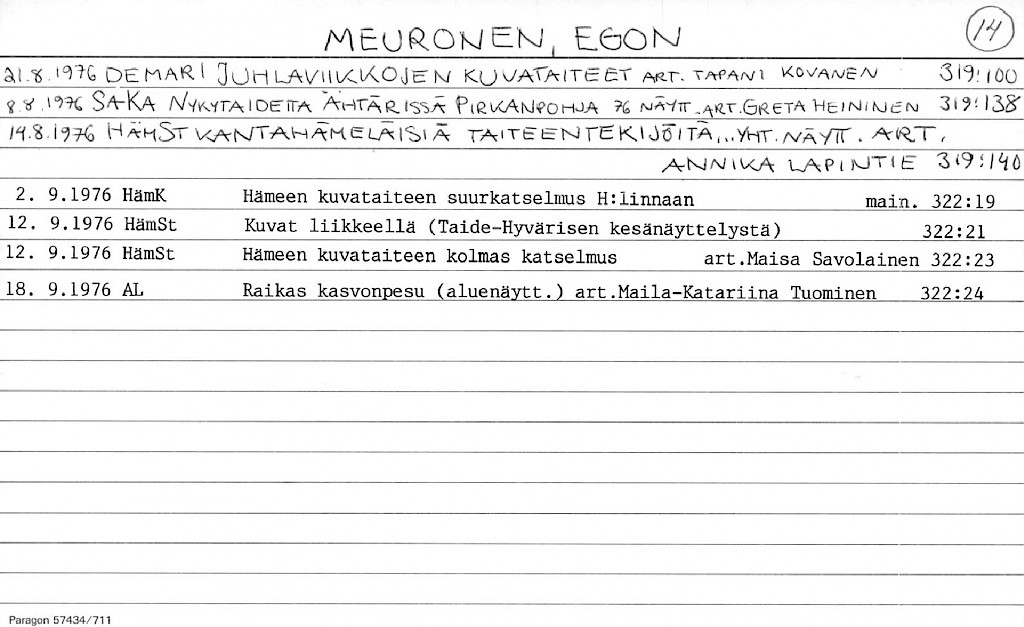 MEURONEN, EGON 14
21.8.1976 DEMARI JUHLAVIIKKOJEN KUVATAITEET ART. TAPANI KOVANEN 319:100
8.8.1976 SA-KA NYKYTAIDETTA ÄHTÄRISSÄ PIRKANPOHJA 76 NÄYTT. ART. GRETA HEININEN 319:138
14.8.1976 HÄMST KANTAHÄMELÄISIÄ TAITEENTEKIJÖITÄ,.. YHT. NÄYTT. ART.
ANNIKA LAPINTIE 319:140
2. 9.1976 HämK Hämeen kuvataiteen suurkatselmus H:linnaan main. 322:19
12. 9.1976 HämSt Kuvat liikkeellä (Taide-Hyvärisen kesänäyttelystä) 322:21
12. 9.1976 HämSt Hämeen kuvataiteen kolmas katselmus art.Maisa Savolainen 322:23
18. 9.1976 AL Raikas kasvonpesu (aluenäytt.) art.Maila-Katariina Tuominen 322:24
Paragon 57434/711